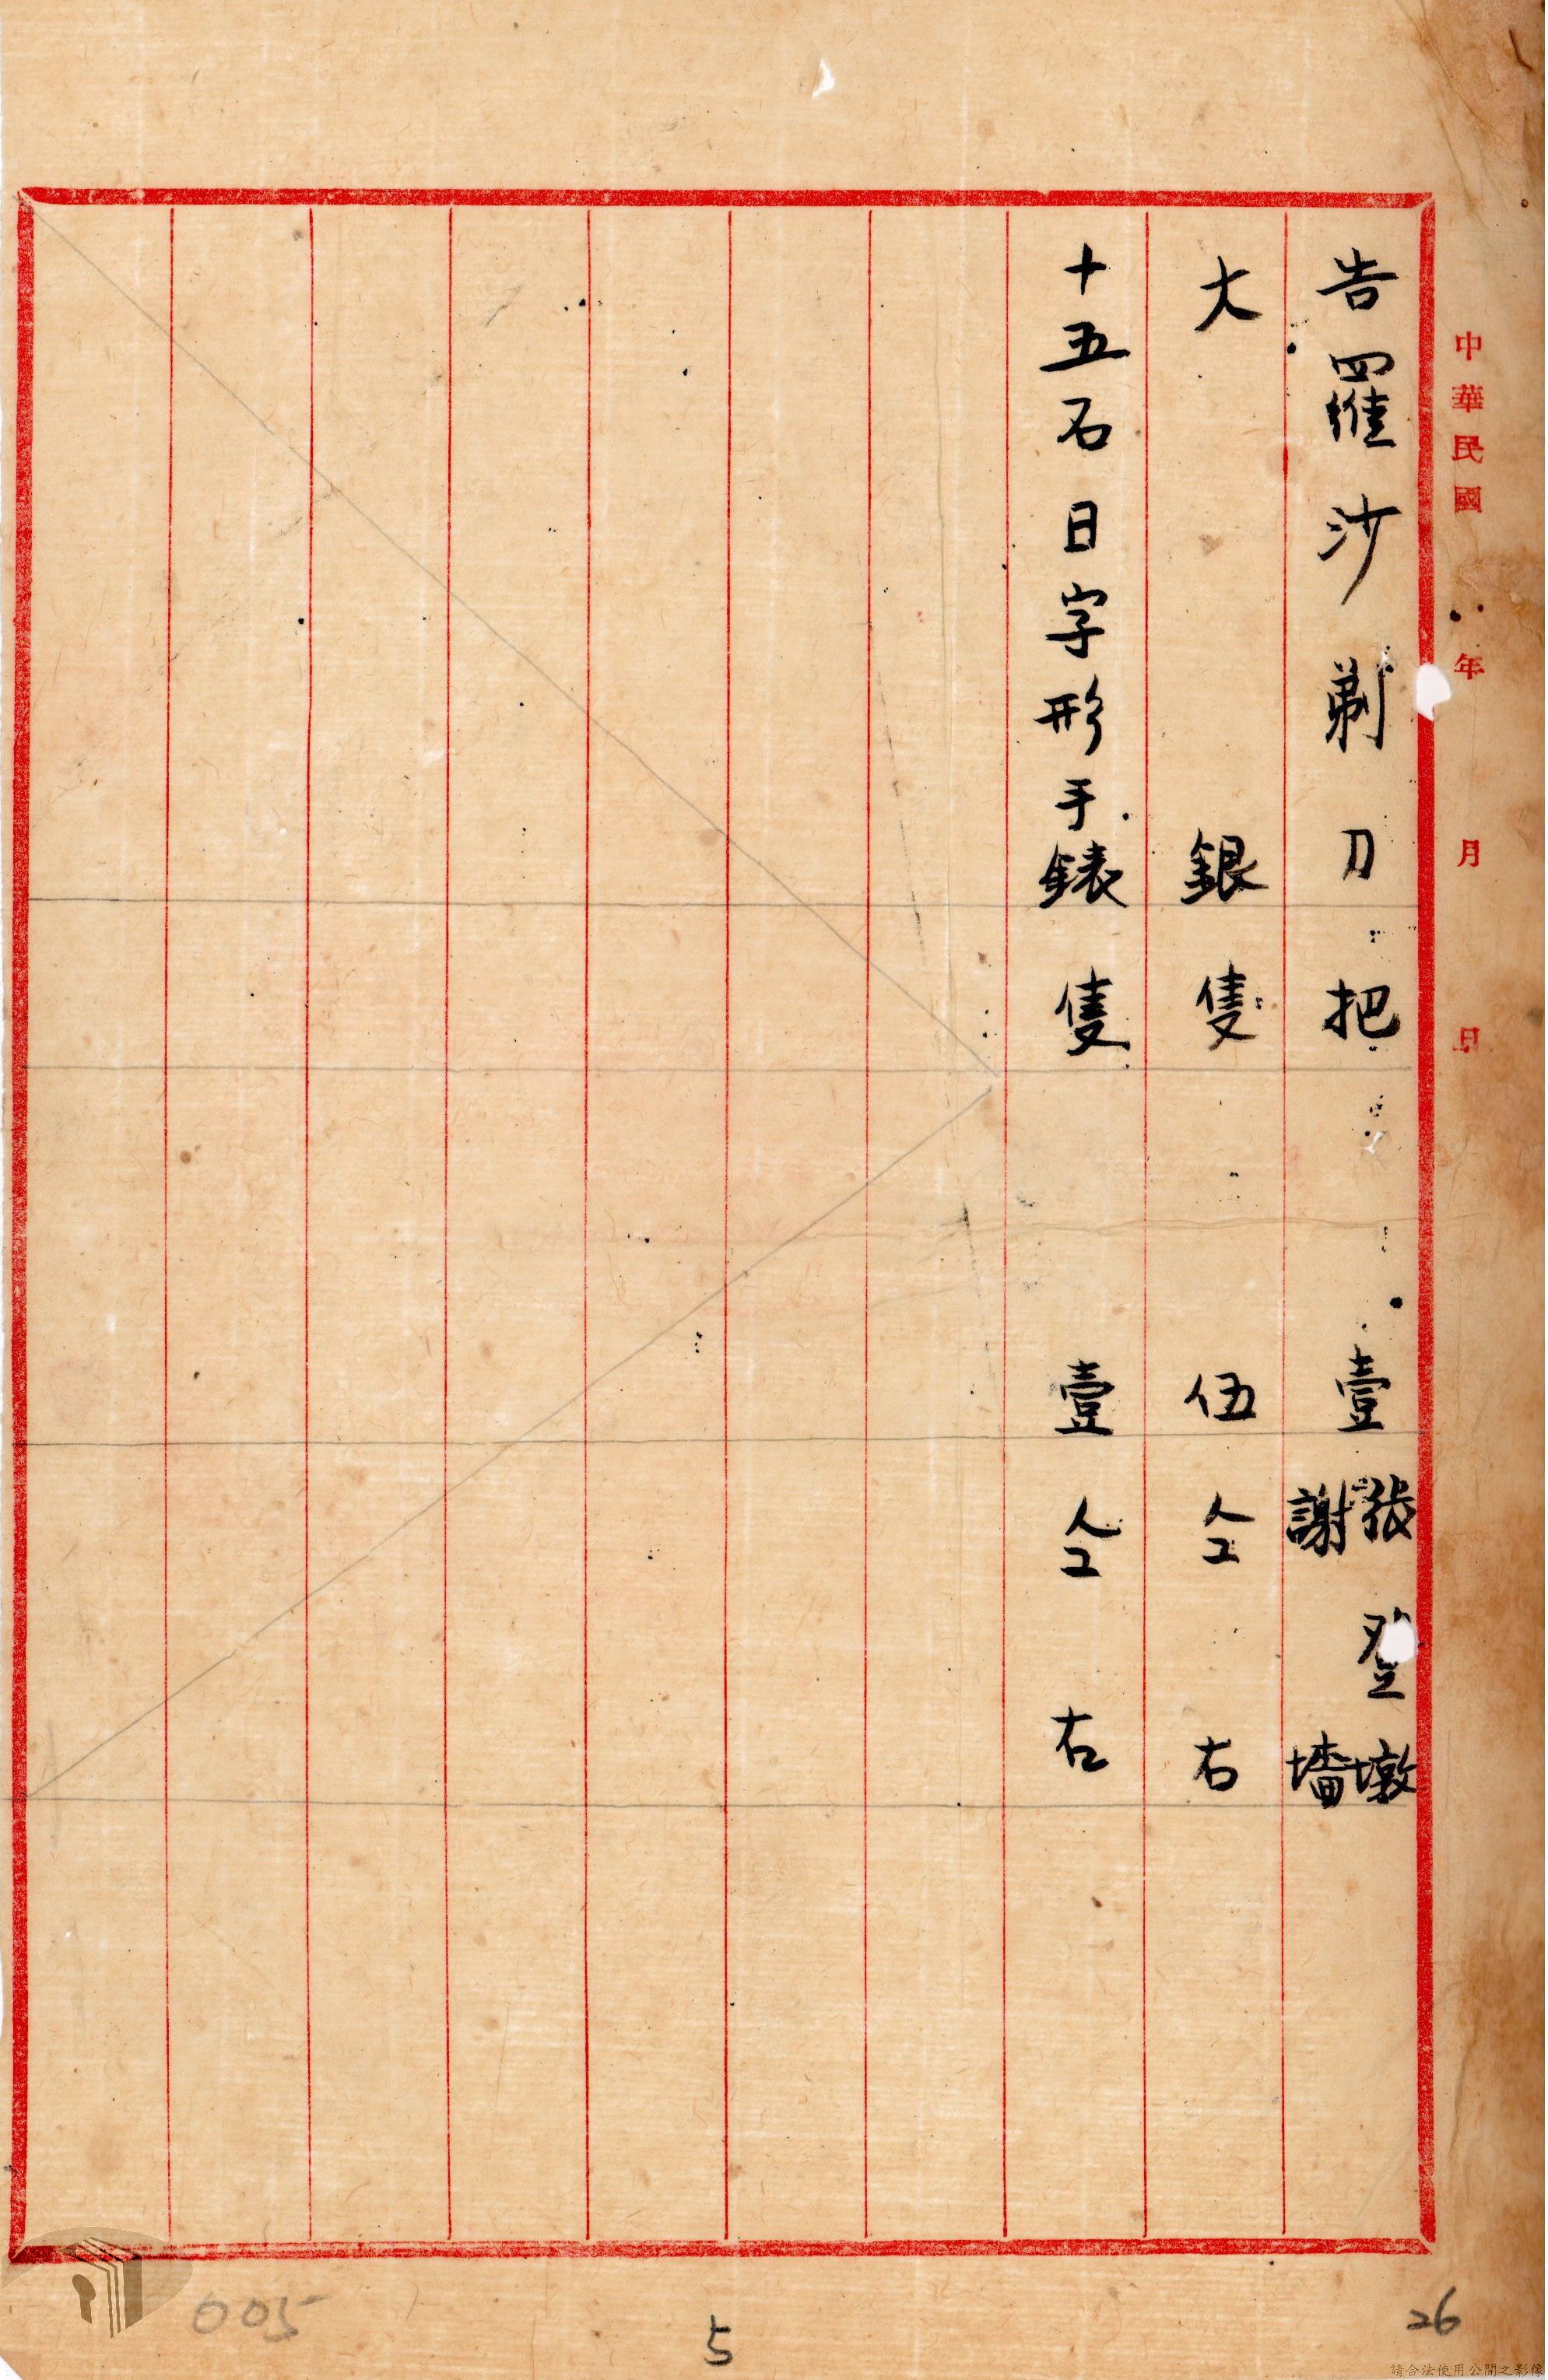 中華民國 年 月 日
告羅沙剃刀 把 壹 張登墩
謝墻
大銀 隻 伍 仝 右
十五石日字形手錶 隻 壹 仝 右
005
5
26
請合法使用公開之影像